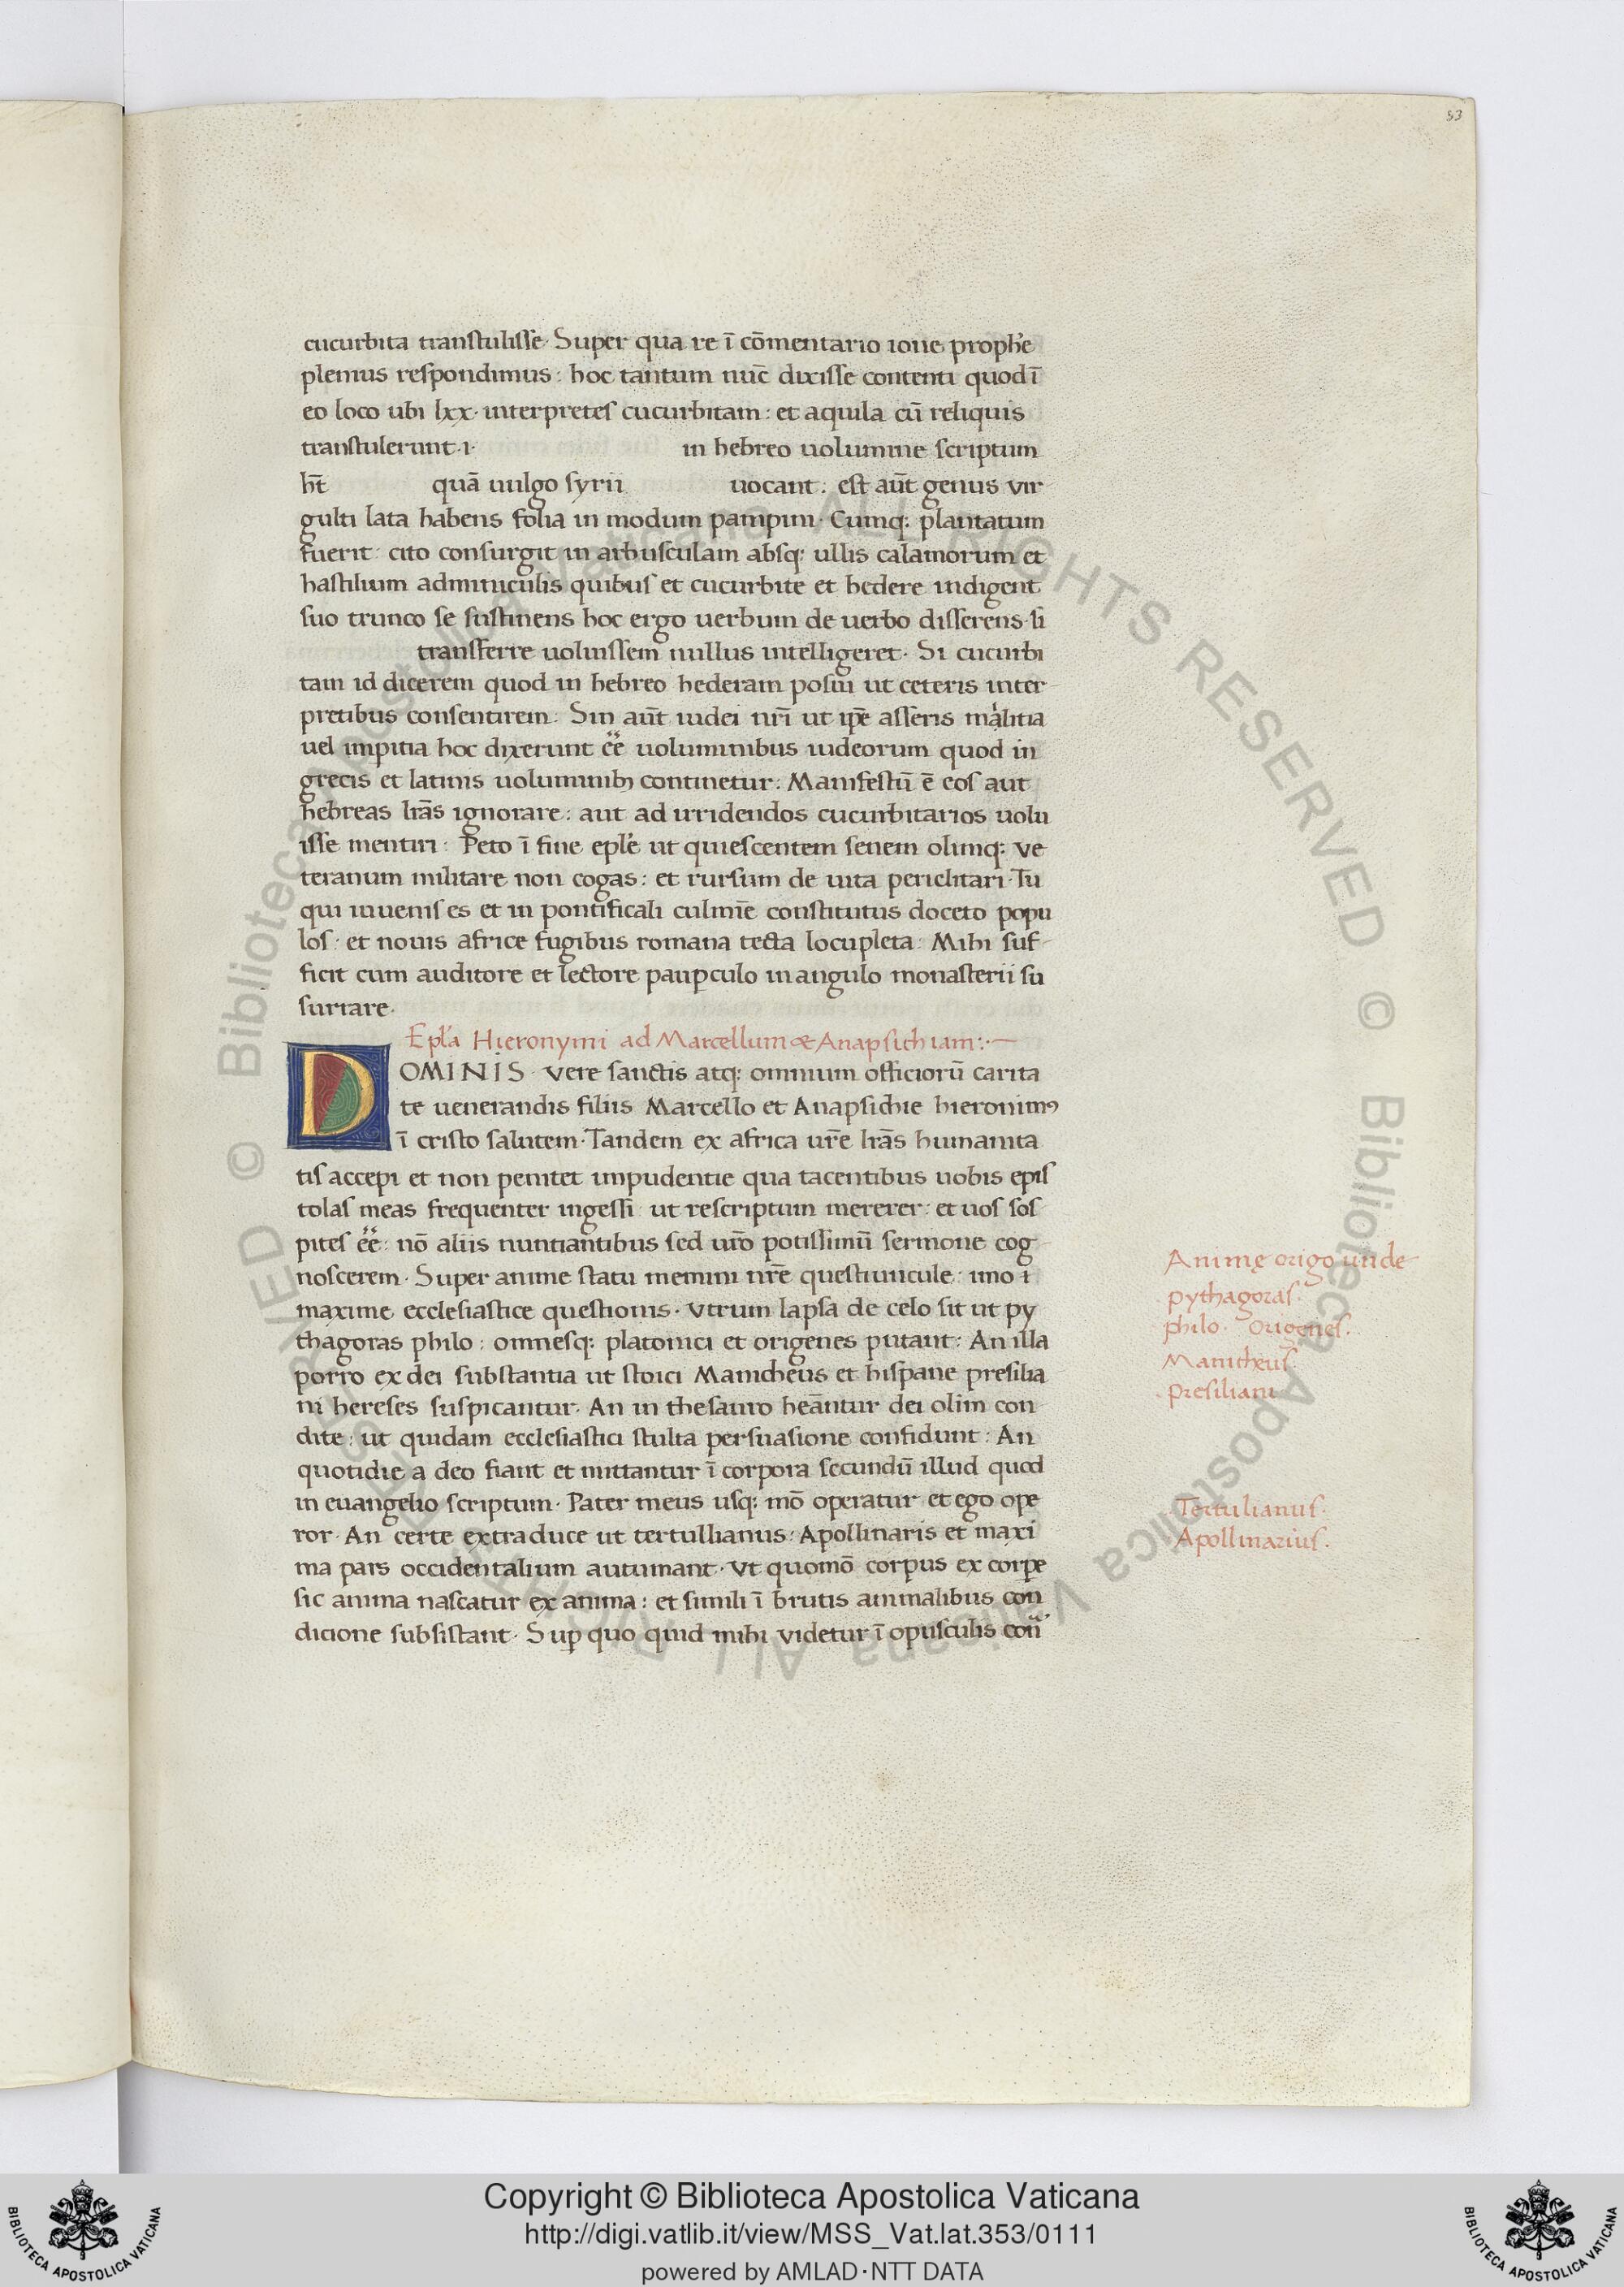 53
cucurbita transtulisse· Super qua re ī cōmentario ione prophe᷎
plenius respondimus: hoc tantum nūc dixisse contenti quod ī
eo loco ubi lxx· interpretes cucurbitam: et aquila cū reliquis
transtulerunt·i· in hebreo uolumine scriptum
hr̄t quā uulgo syrii uocant: est aūt genus vir
gulti lata habens folia in modum pampini· Cumq: plantatum
fuerit: cito consurgit in arbusculam absq: ullis calamorum et
hastilium adminiculis quibus et cucurbite et hedere indigent
suo trunco se sustinens hoc ergo uerbum de uerbo disserens·si
transferre uoluissem nullus intelligeret· Si cucurbi
tam id dicerem quod in hebreo hederam posui ut ceteris inter-
pretibus consentirem: Sin aūt iudei nrī ut ipē asseris malitia
uel impitia hoc dixerunt ēē uoluminibus iudeorum quod in
grecis et latinis uoluminibꝫ continetur: Manifestū ē eos aut
hebreas lrās ignorare: aut ad irridendos cucurbitarios uolu
isse mentiri: Peto ī fine eple ut quiescentem senem olimq: ve
teranum militare non cogas: et rursum de uita periclitari·Tu
qui iuuenis es et in pontificali culmīe constitutus doceto popu
los: et nouis africe fugibus romana tecta locupleta: Mihi suf-
ficit cum auditore et lectore paupculo in angulo monasterii su
surrare·
Epla Hieronymi ad Marcellum & Anapsichiam:·—
DOMINIS· vere sanctis atq: omnium officiorū carita
te uenerandis filiis Marcello et Anapsichie hieronimꝰ
ī cristo salutem·Tandem ex africa ur̄e lrās humanita
tis accepi et non penitet impudentie qua tacentibus uobis epis
tolas meas frequenter ingessi: ut rescriptum mererer: et uos sos
pites ēē: nō aliis nuntiantibus sed ur̄o potissimū sermone cog-
noscerem· Super anime statu memini nr̄e questiuncule: imo i
maxime ecclesiastice questionis· Vtrum lapsa de celo sit ut py
thagoras philo: omnesq: platonici et origenes putant: An illa
porro ex dei substantia ut stoici Manicheus et hispane presilia
ni hereses suspicantur· An in thesauro heāntur dei olim con
dite: ut quidam ecclesiastici stulta persuasione confidunt: An
quotidie a deo fiant et mittantur ī corpora secundū illud quod
in euangelio scriptum· Pater meus usq: mō operatur et ego ope
ror· An certe extraduce ut tertullianus: Apollinaris et maxi
ma pars occidentalium autumant· Vt quomō corpus ex corpe
sic anima nascatur ex anima: et simili ī brutis animalibus con
dicione subsistant· Sup quo quid mihi videtur ī opusculis con
Animę origo unde
pythagoras·
philo· Origenes·
Manicheus·
Presiliani
Tertulianus·
Apollinarius·
© Biblioteca Apostolica Vaticana ALL RIGHTS RESERVED © Biblioteca Apostolica Vaticana ALL RIGHTS RESERVED
Copyright © Biblioteca Apostolica Vaticana
http://digi.vatlib.it/view/MSS_Vat.lat.353/0111
powered by AMLAD·NTT DATA
BIBLIOTECA APOSTOLICA VATICANA
BIBLIOTECA APOSTOLICA VATICANA